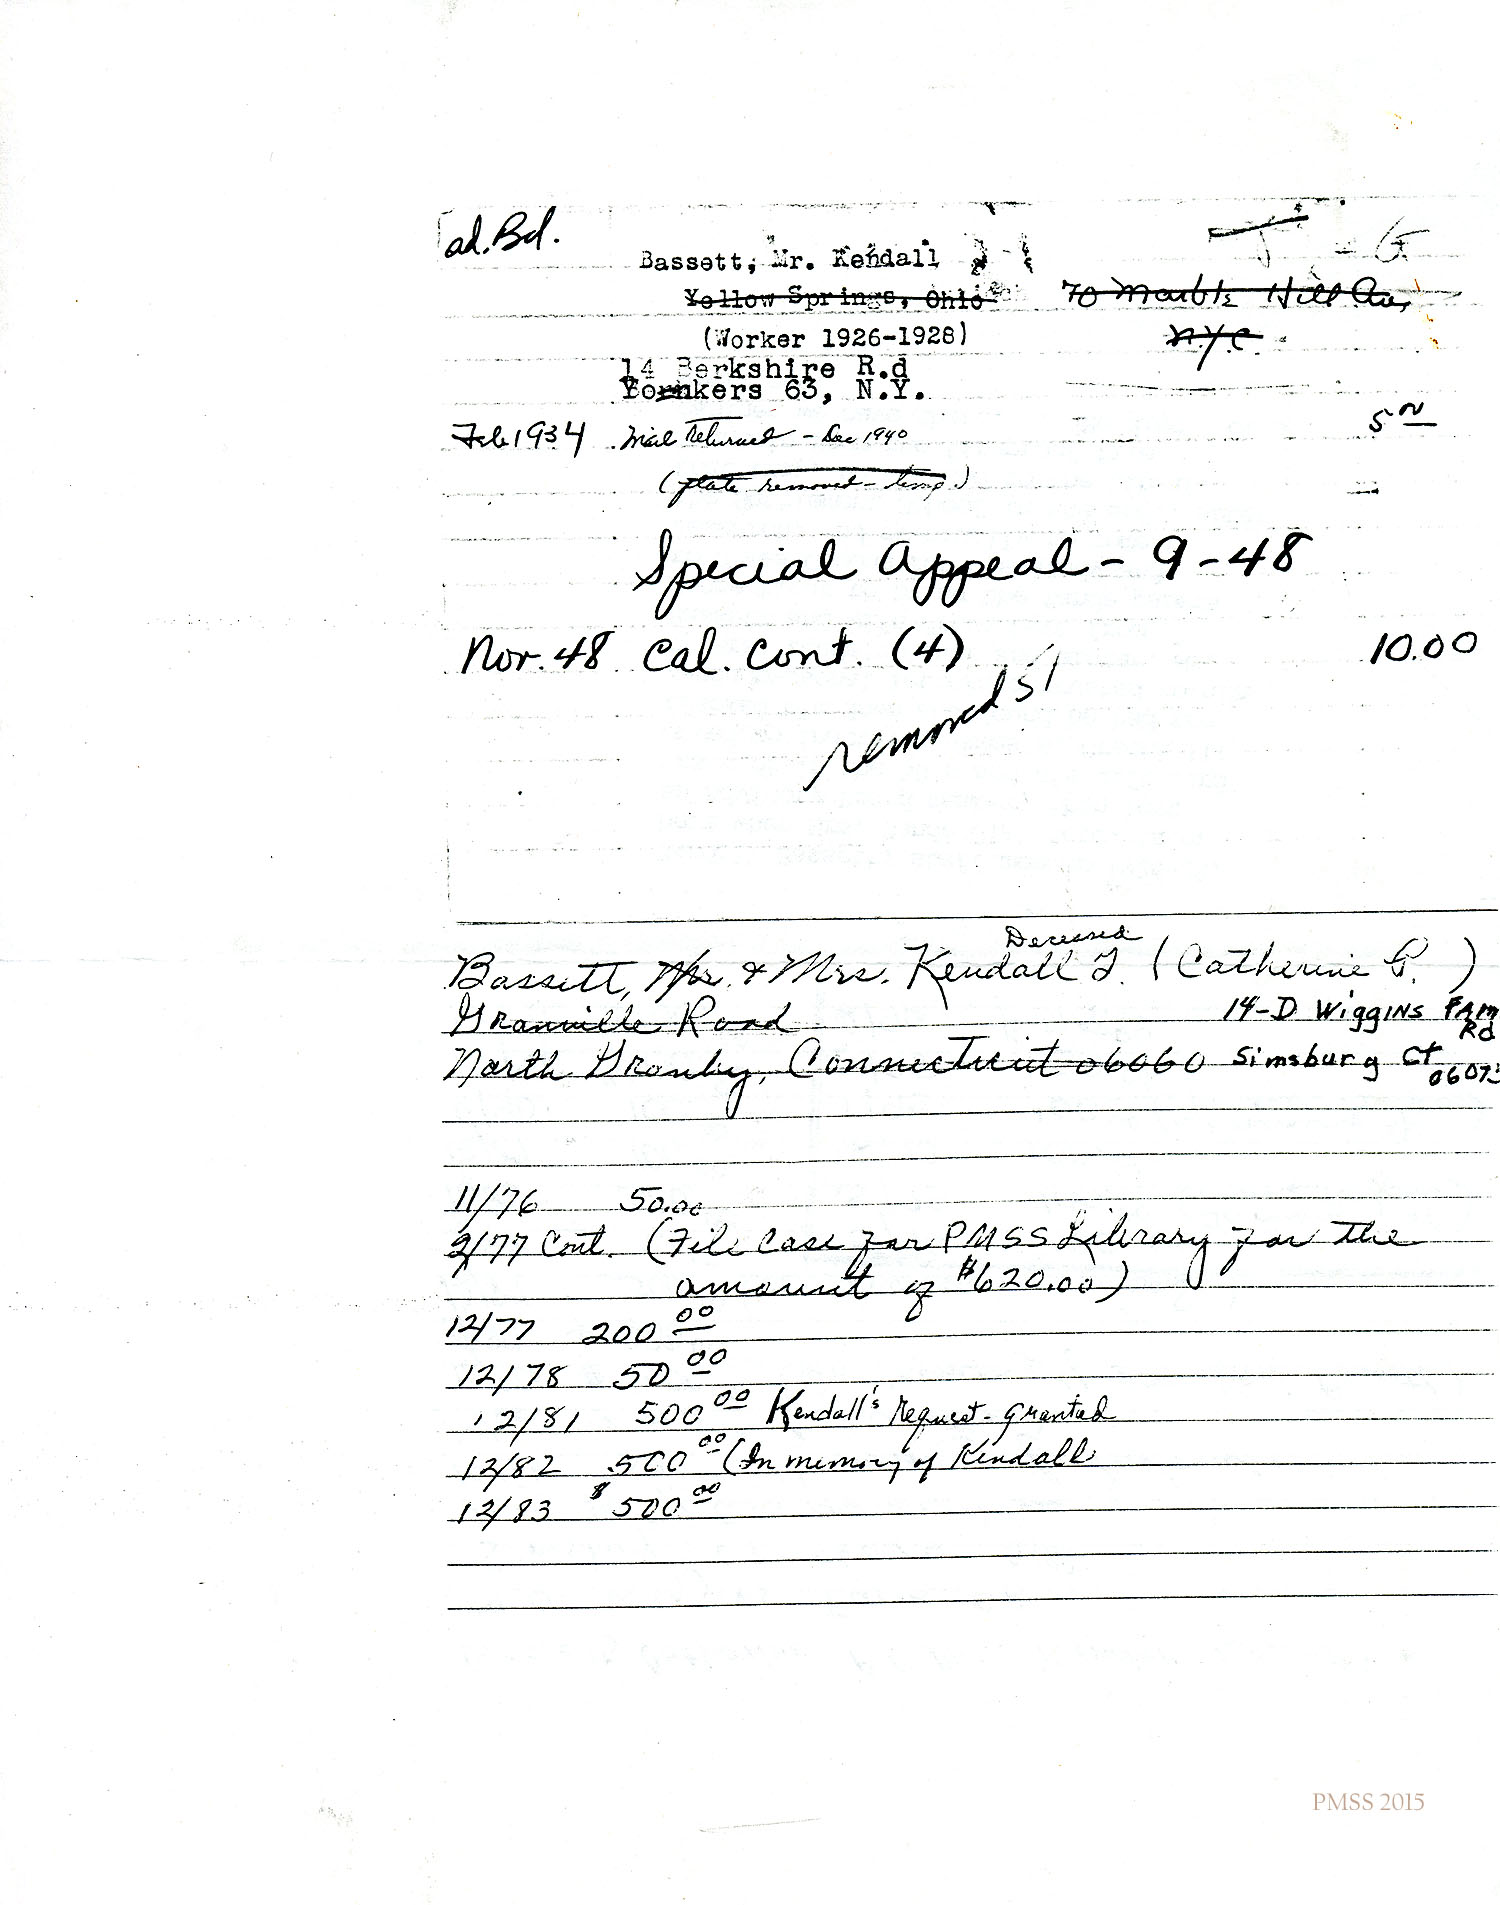 ad. Bd.
Bassett, Mr. Kendall
Yellow Springs, Ohio 70 Marble Hill Av,
(Worker 1926-1928) N.Y.C.
14 Berkshire R.d
Yonkers 63, N.Y.
Feb 1934 Mail Returned - Dec 1940 5
(plate removed - temp.)
Special Appeal - 9-48
Nov. 48 Cal. Cont. (4) 10.00
removed 51
Deceased
Bassett, Mr. & Mrs. Kendall T. (Catherine P. )
Granville Road 14-D Wiggins FArm Rd
North Granby, Connecticut 06060 Simsburg Ct
11/76 50.00
2/77 Cont. (File Case for PMSS Library for the
amount of $620.00)
12/77 200 00
12/78 50 00
12/81 500 00 Kendall's request - granted
12/82 500 00 (In memory of Kendall
12/83 $ 500 00
PMSS 2015